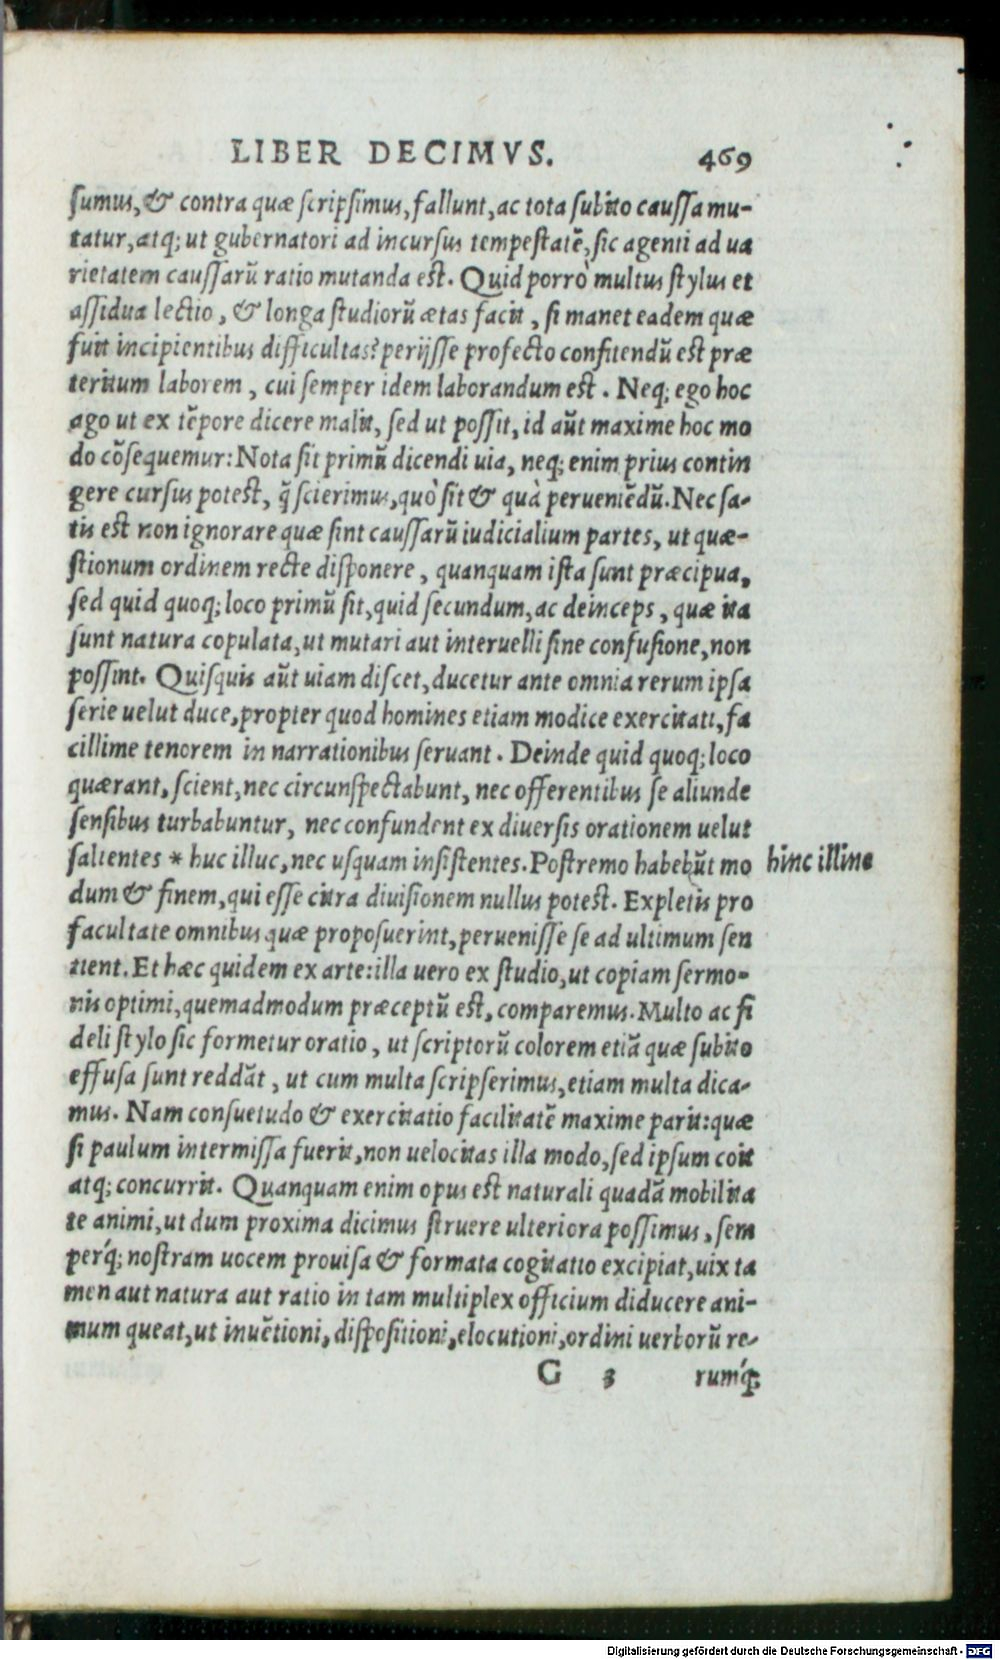 LIBER DECIMVS. 469
sumus, & contra quæ scripsimus, fallunt, ac tota subito caussa mu-
tatur, atq; ut gubernatori ad incursus tempestatē, sic agenti ad ua
rietatem caussarū ratio mutanda est. Quid porrò multus stylus et
assidua lectio, & longa studiorū ætas facit, si manet eadem quæ
fuit incipientibus difficultas? perijsse profecto confitendū est præ
teritum laborem, cui semper idem laborandum est. Neq; ego hoc
ago ut ex tēpore dicere malit, sed ut possit, id aūt maxime hoc mo
do cōsequemur: Nota sit primū dicendi uia, neq; enim prius contin
gere cursus potest, q̄ scierimus, quò sit & quà perueniēdū. Nec sa-
tis est non ignorare quæ sint caussarū iudicialium partes, ut quæ-
stionum ordinem recte disponere, quanquam ista sunt præcipua,
sed quid quoq; loco primū sit, quid secundum, ac deinceps, quæ ita
sunt natura copulata, ut mutari aut interuelli sine confusione, non
possint. Quisquis aūt uiam discet, ducetur ante omnia rerum ipsa
serie uelut duce, propter quod homines etiam modice exercitati, fa
cillime tenorem in narrationibus seruant. Deinde quid quoq; loco
quærant, scient, nec circunspectabunt, nec offerentibus se aliunde
sensibus turbabuntur, nec confundent ex diuersis orationem uelut
salientes * huc illuc, nec usquam insistentes. Postremo habebūt mo hinc illinc
dum & finem, qui esse citra diuisionem nullus potest. Expletis pro
facultate omnibus quæ proposuerint, peruenisse se ad ultimum sen
tient. Et hæc quidem ex arte: illa uero ex studio, ut copiam sermo-
nis optimi, quemadmodum præceptū est, comparemus. Multo ac fi
deli stylo sic formetur oratio, ut scriptorū colorem etiā quæ subito
effusa sunt reddāt, ut cum multa scripserimus, etiam multa dica-
mus. Nam consuetudo & exercitatio facilitatē maxime parit: quæ
si paulum intermissa fuerit, non uelocitas illa modo, sed ipsum coit
atq; concurrit. Quanquam enim opus est naturali quadā mobilita
te animi, ut dum proxima dicimus struere ulteriora possimus, sem
perq́; nostram uocem prouisa & formata cogitatio excipiat, uix ta
men aut natura aut ratio in tam multiplex officium diducere ani-
mum queat, ut inuētioni, dispositioni, elocutioni, ordini uerborū re-
G 3 rumq́;
Digitalisierung gefördert durch die Deutsche Forschungsgemeinschaft - DFG